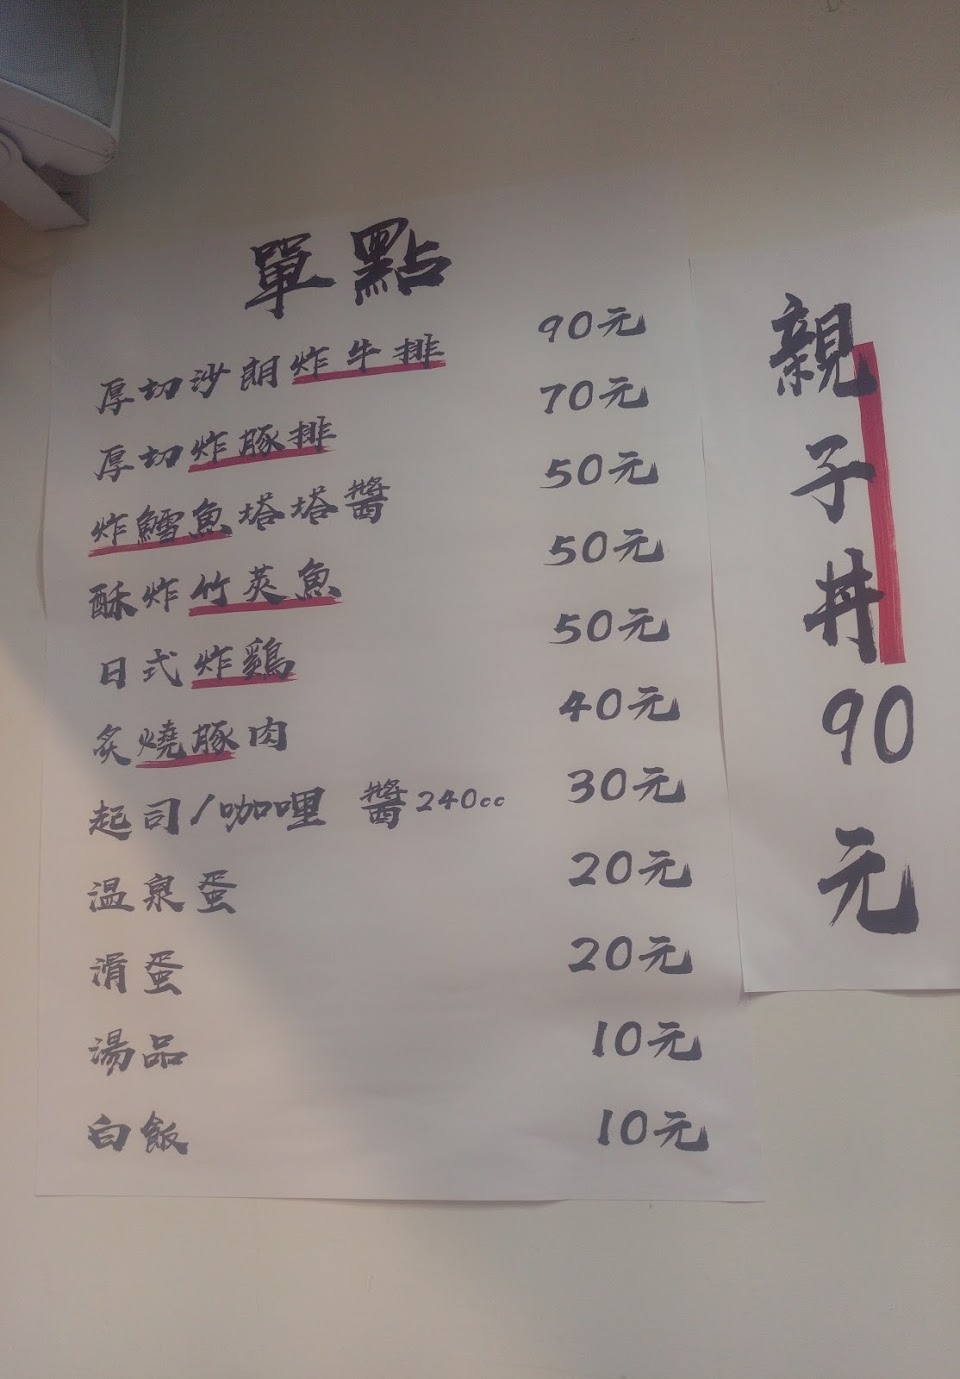 單點
厚切沙朗炸牛排 90元
厚切炸豚排 70元
炸鱈魚塔塔醬 50元
酥炸竹莢魚 50元
日式炸鷄 50元
炙燒豚肉 40元
起司/咖哩 醬240cc 30元
溫泉蛋 20元
滑蛋 20元
湯品 10元
白飯 10元
親子丼90元